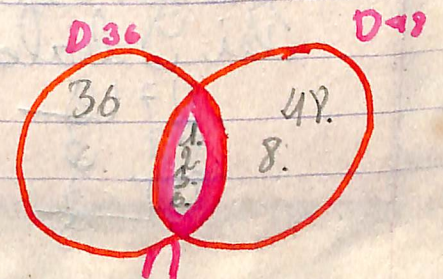 D 36
D 48
36
48.
8.
1.
2
3.
6.